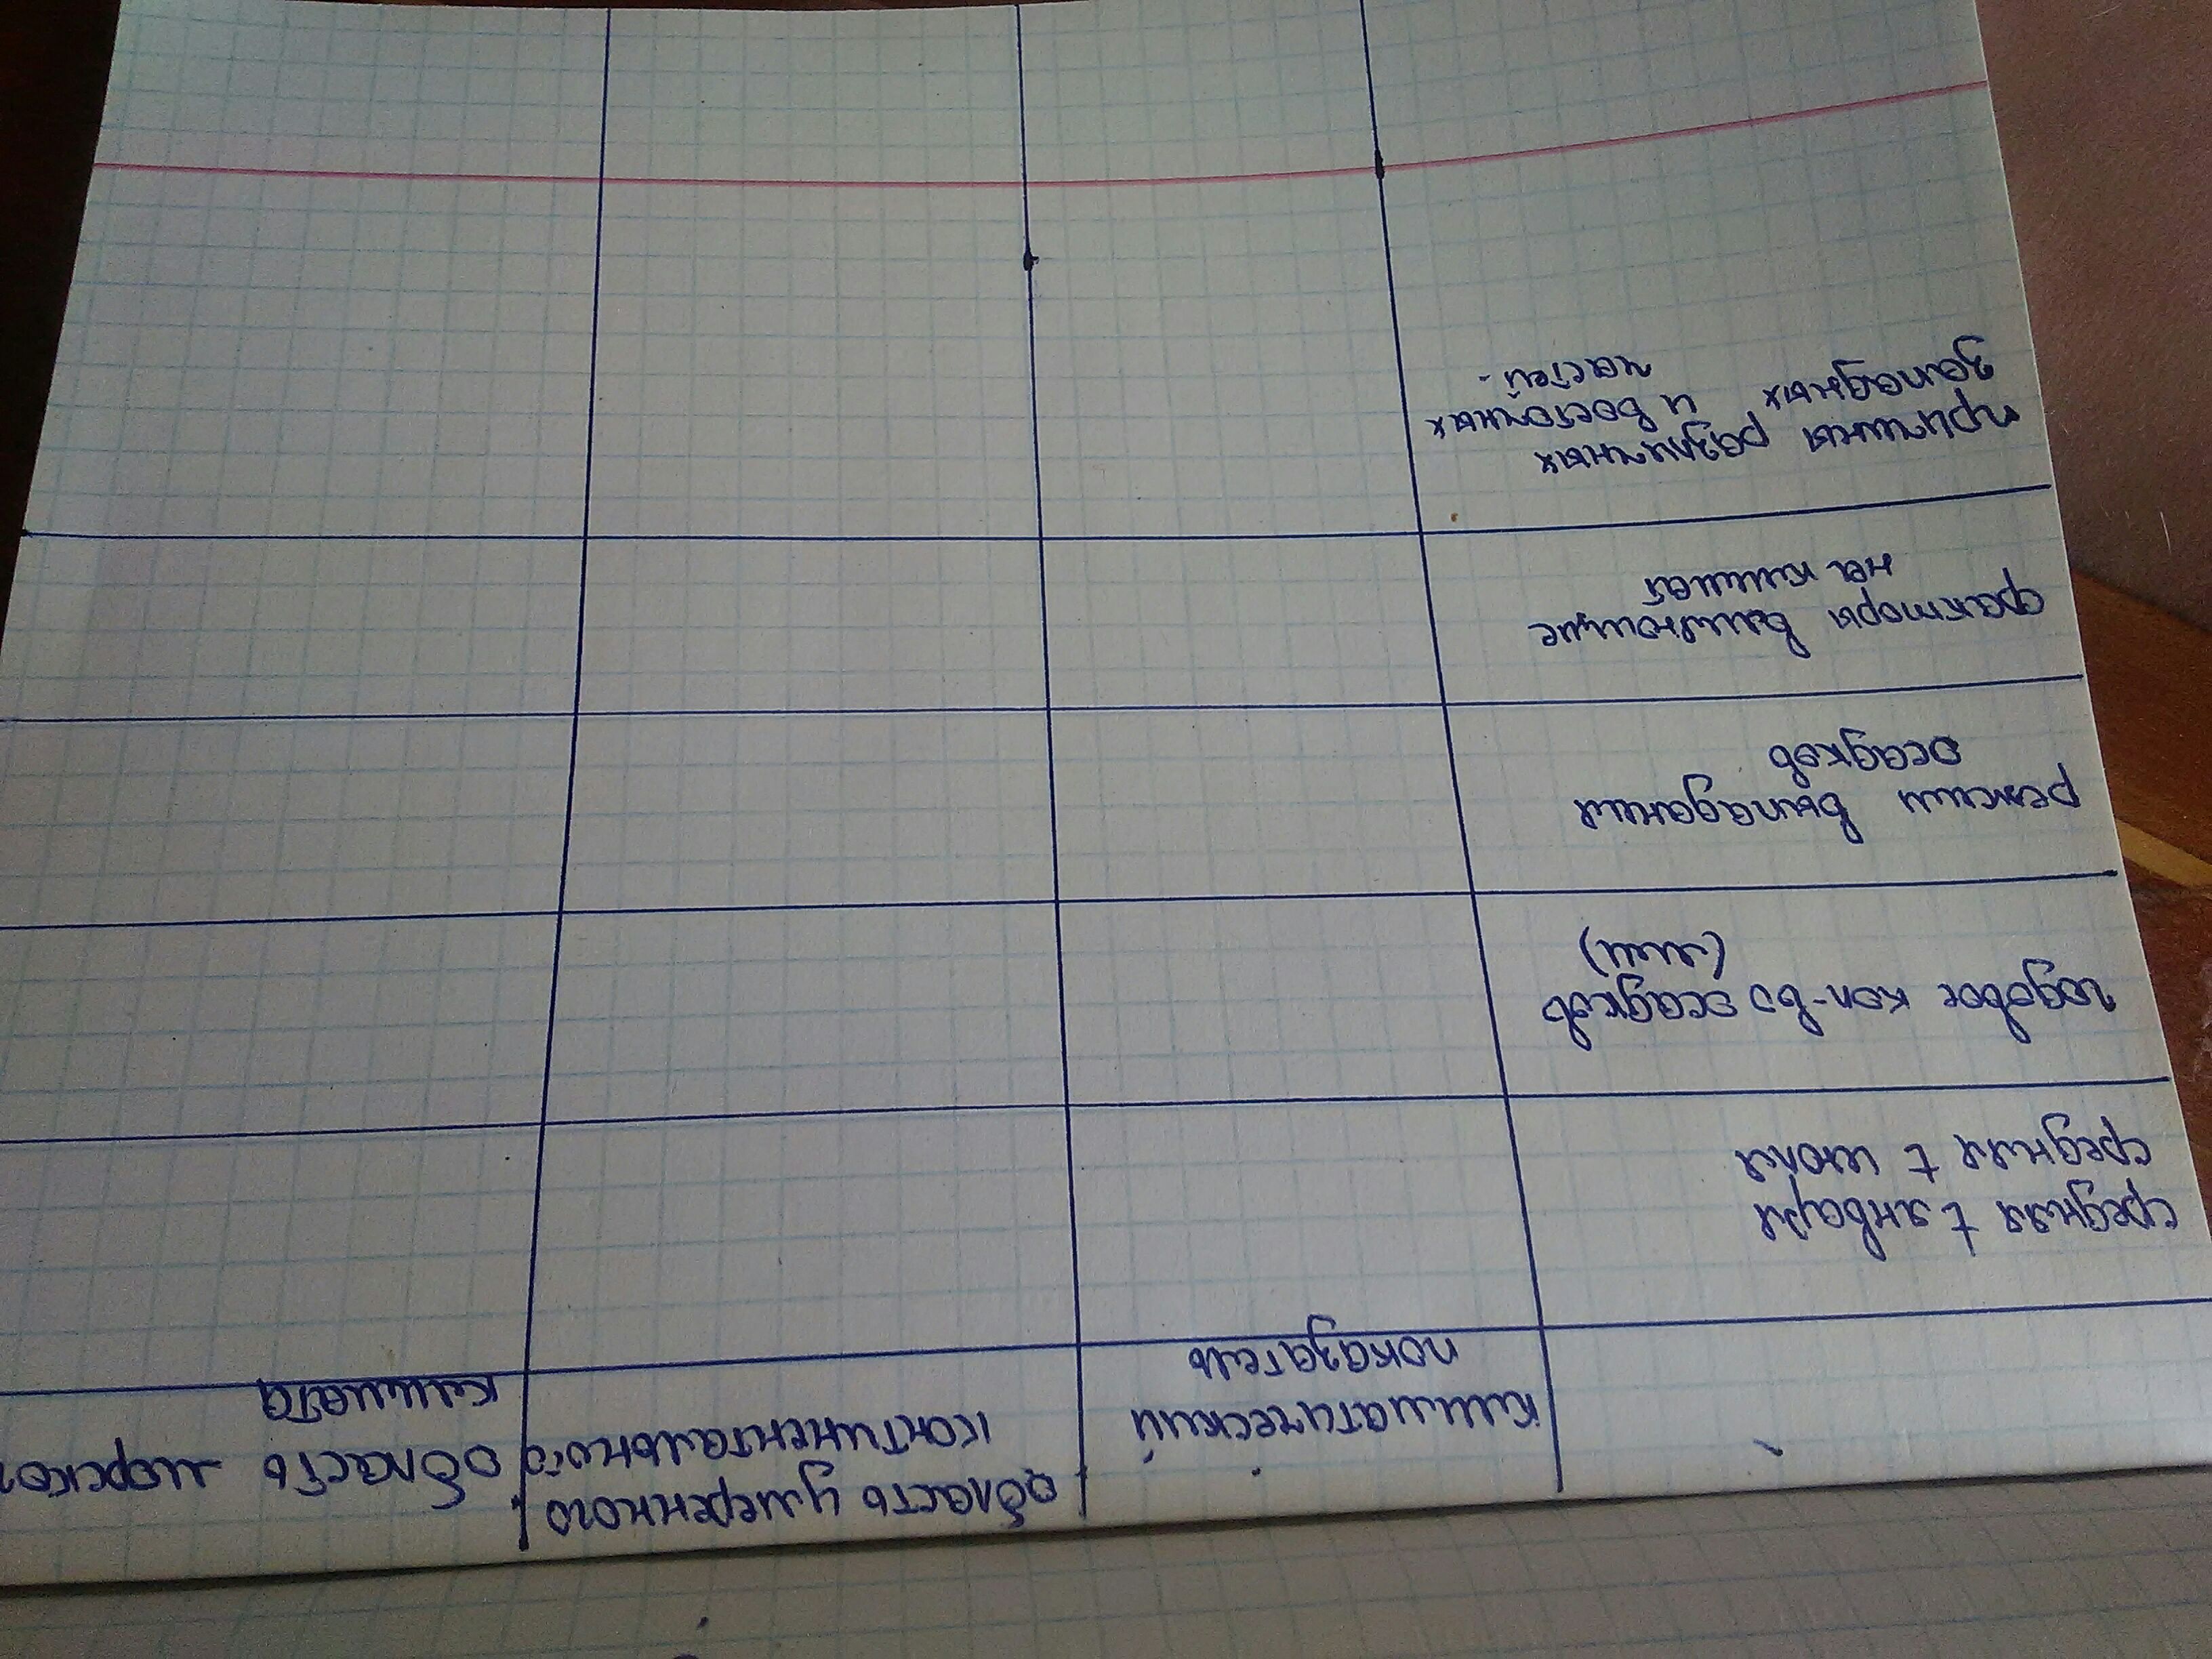 климатический
показатель
область умеренного
континентального
область морског
климата
средняя t января
средняя t июля
годовое кол-во осадков
(мм)
режим выпадания
осадков
факторы влияющие
на климат
причины различных
западных и восточных
частей.